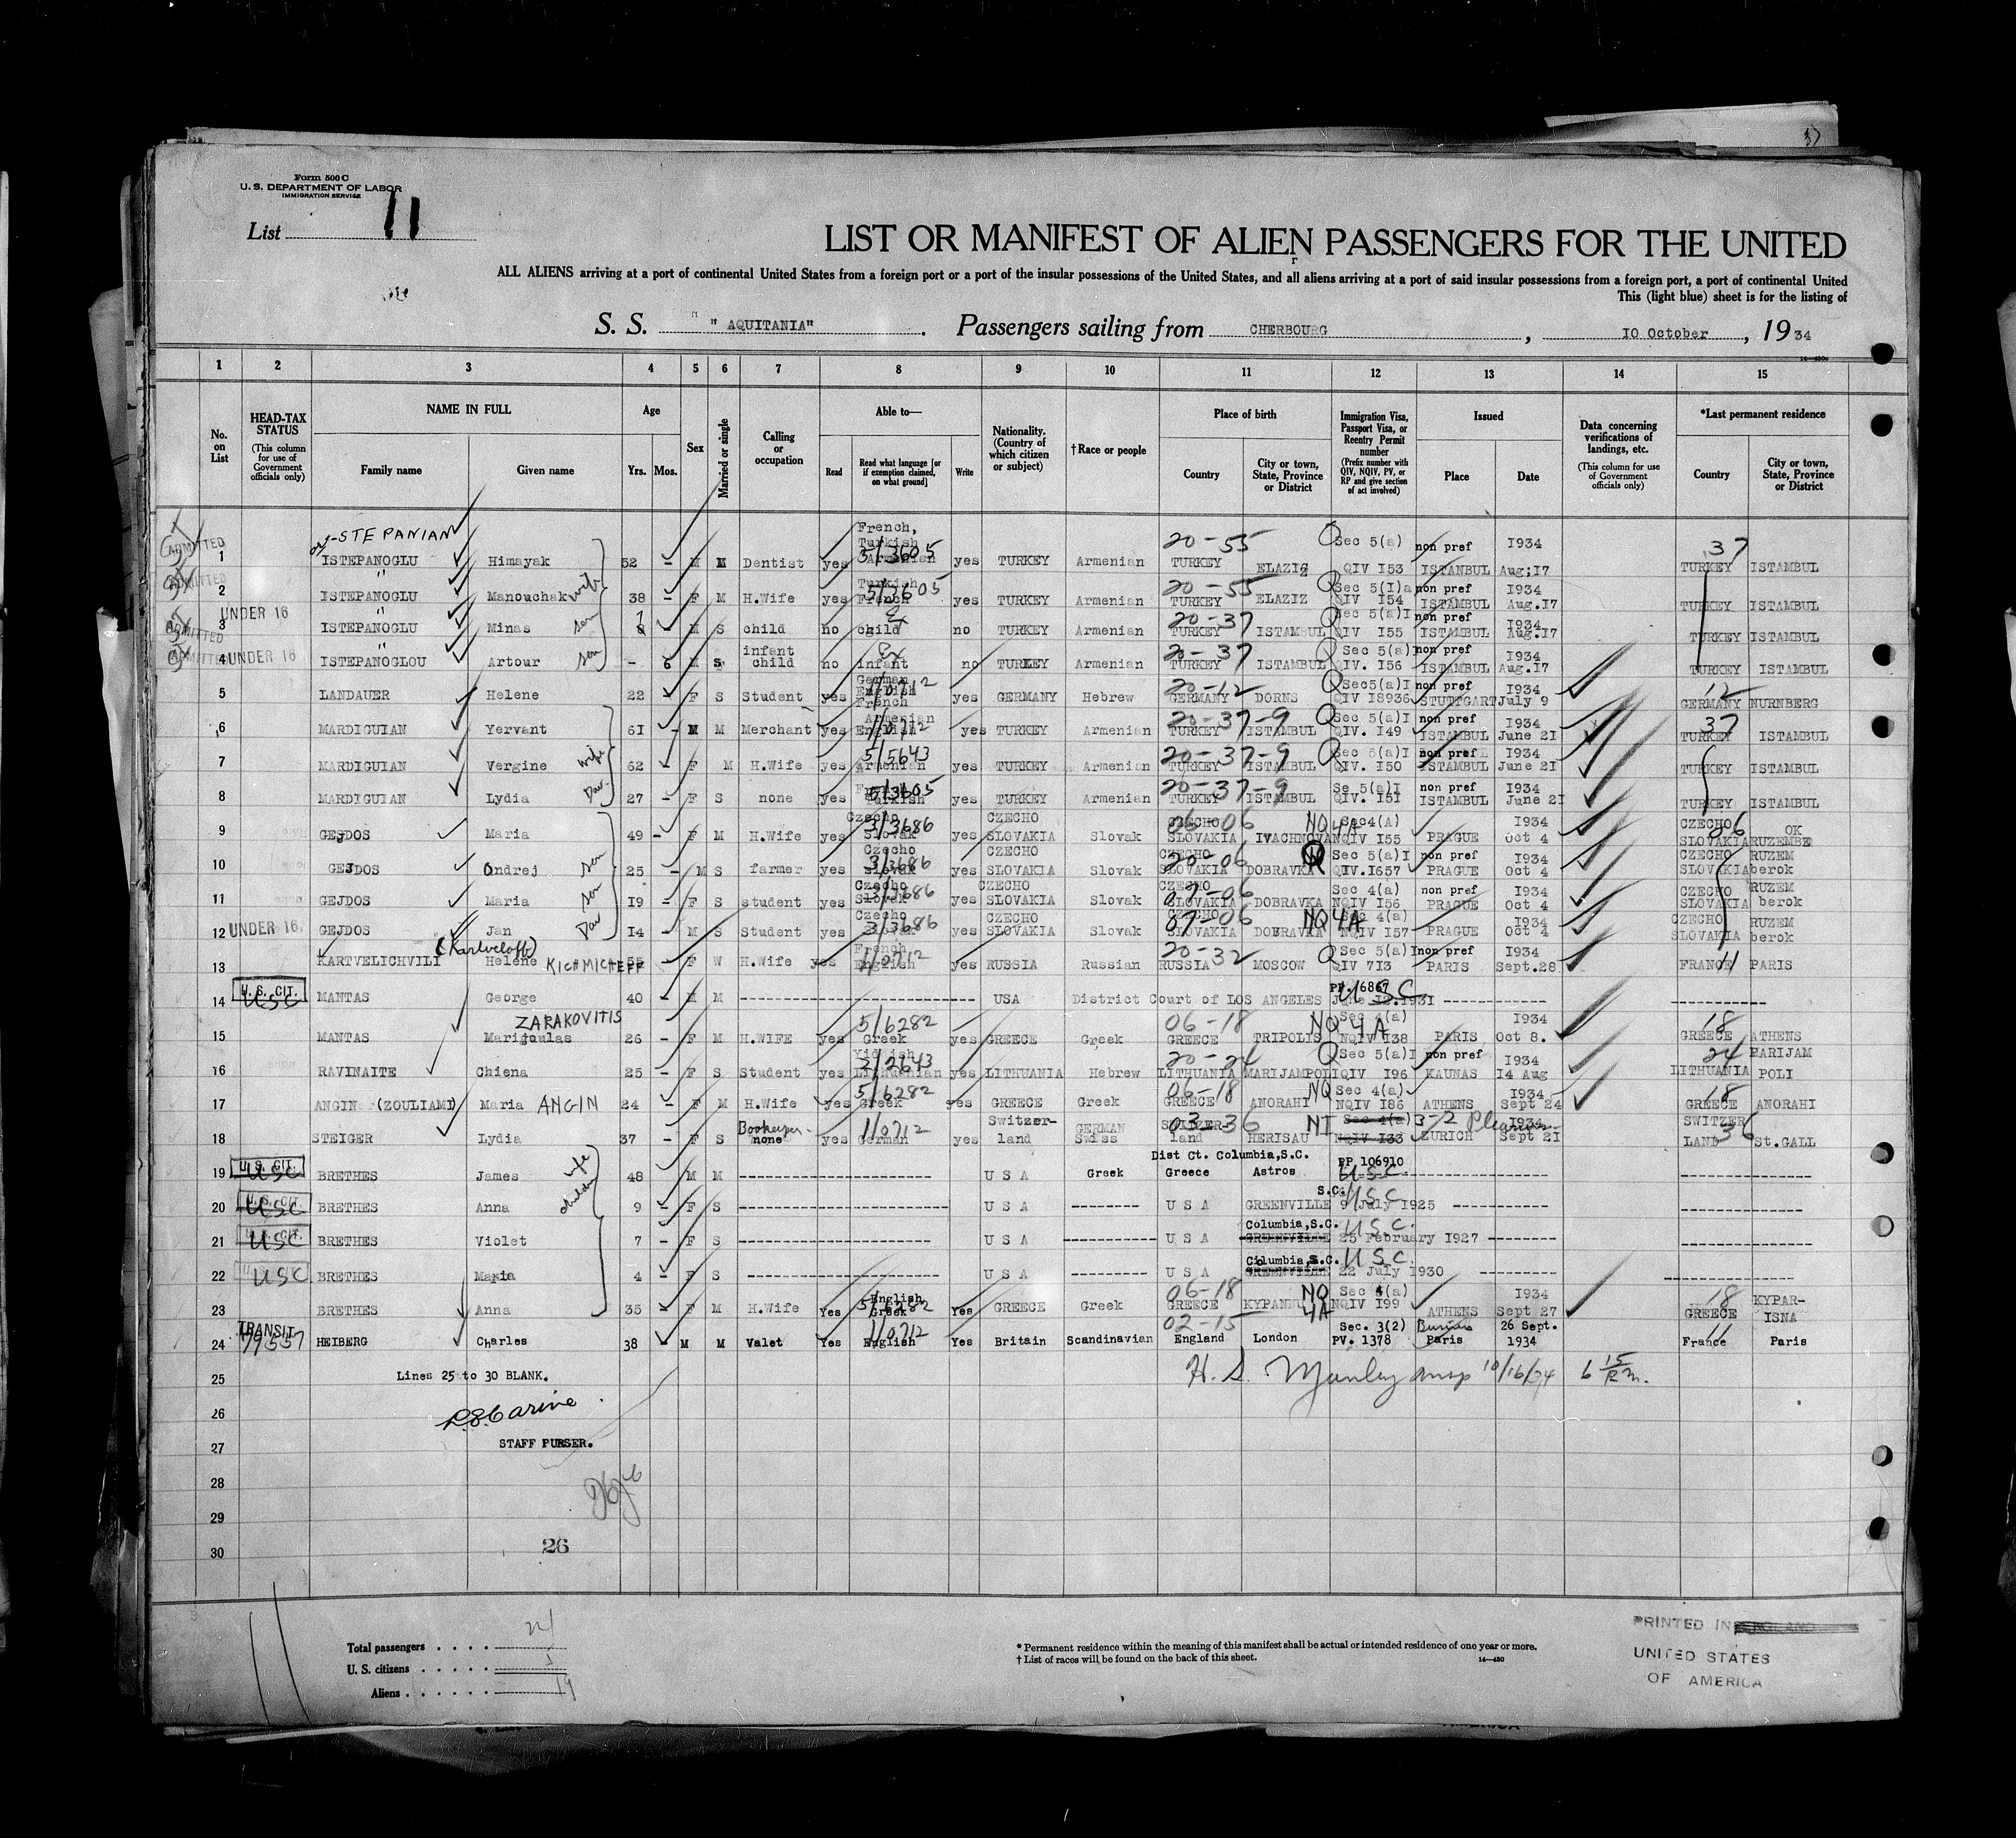 37
Form 500 C
U. S. DEPARTMENT OF LABOR
IMMIGRATION SERVICE
List 11
LIST OR MANIFEST OF ALIEN PASSENGERS FOR THE UNITED
ALL ALIENS arriving at a port of continental United States from a foreign port or a port of the insular possessions of the United States, and all aliens arriving at a port of said insular possessions from a foreign port, a port of continental United
This (light blue) sheet is for the listing of
S. S. "AQUITANIA". Passengers sailing from CHERBOURG, 10 October, 1934
1 2 3 4 5 6 7 8 9 10 11 12 13 14 15
No. on List
HEAD-TAX STATUS (This column for use of Government officials only)
NAME IN FULL Family name Given name
Age Yrs. Mos.
Sex
Married or single
Calling or occupation
Able to— Read Read what language [or if exemption claimed, on what ground] Write
Nationality. (Country of which citizen or subject)
†Race or people
Place of birth Country City or town, State, Province or District
Immigration Visa, Passport Visa, or Reentry Permit number (Prefix number with QIV, NQIV, PV, or RP and give section of act involved)
Issued Place Date
Data concerning verifications of landings, etc. (This column for use of Government officials only)
*Last permanent residence Country City or town, State, Province or District
STEPANIAN French, Turkish 20-55 Q Sec 5(a) non pref I934 37
ADMITTED 1 ISTEPANOGLU Himayak 52 - M M Dentist yes Armenian 5/3605 yes TURKEY Armenian TURKEY ELAZIZ QIV I53 ISTANBUL Aug;I7 TURKEY ISTAMBUL
ADMITTED 2 ISTEPANOGLU " Manouchak wife 38 - F M H.Wife yes Turkish French 5/3605 yes TURKEY Armenian 20-55 TURKEY ELAZIZ Q Sec 5(I)a QIV I54 non pref ISTAMBUL I934 Aug.I7 TURKEY ISTAMBUL
ADMITTED 3 UNDER 16 ISTEPANOGLU " Minas son 7 - M S child no child no TURKEY Armenian 20-37 TURKEY ISTAMBUL Sec 5(a)I QIV I55 non pref ISTAMBUL I934 Aug.I7 TURKEY ISTAMBUL
ADMITTED 4 UNDER 16 ISTEPANOGLOU " Artour son - 6 M S infant child no infant no TURKEY Armenian 20-37 TURKEY ISTAMBUL Sec 5(a)I QIV. I56 non pref ISTAMBUL I934 Aug.I7 TURKEY ISTAMBUL
5 LANDAUER Helene 22 - F S Student yes German English French 1/0712 yes GERMANY Hebrew 20-12 GERMANY DORNS Q Sec5(a)I QIV I8936 non pref STUTTGART I934 July 9 12 GERMANY NURNBERG
6 MARDIGUIAN Yervant 61 - M M Merchant yes Armenian English 1/0712 yes TURKEY Armenian 20-37-9 TURKEY ISTAMBUL Q Sec 5(a)I QIV. I49 non pref ISTAMBUL I934 June 2I 37 TURKEY ISTAMBUL
7 MARDIGUIAN Vergine wife 62 - F M H.Wife yes Armenian 5/5643 yes TURKEY Armenian 20-37-9 TURKEY ISTAMBUL Q Sec 5(a)I QIV. I50 non pref ISTAMBUL I934 June 2I TURKEY ISTAMBUL
8 MARDIGUIAN Lydia Dau. 27 - F S none yes French Turkish 5/3605 yes TURKEY Armenian 20-37-9 TURKEY ISTAMBUL Se 5(a)I QIV. I5I non pref ISTAMBUL I934 June 2I TURKEY ISTAMBUL
9 GEJDOS Maria 49 - F M H.Wife yes Czecho Slovak 3/3686 yes CZECHO SLOVAKIA Slovak 06-06 CZECHO SLOVAKIA IVACHNOVA NQ 4A Sec4(A) NQIV I55 PRAGUE I934 Oct 4 CZECHO SLOVAKIA 26 OK RUZEMBE
10 GEJDOS Ondrej son 25 - M S farmer yes Czecho Slovak 3/3686 yes CZECHO SLOVAKIA Slovak 20-06 CZECHO SLOVAKIA DOBRAVKA Sec 5(a)I QIV.I657 non pref PRAGUE I934 Oct 4 CZECHO SLOVAKIA RUZEM berok
11 GEJDOS Maria son I9 - F S student yes Czecho Slovak 3/3686 yes CZECHO SLOVAKIA Slovak 07-06 CZECHO SLOVAKIA DOBRAVKA Sec 4(a) NQIV I56 non pref PRAGUE I934 Oct 4 CZECHO SLOVAKIA RUZEM berok
12 UNDER 16. GEJDOS Jan Dau I4 - M S Student yes Czecho 3/3686 yes CZECHO SLOVAKIA Slovak 07-06 CZECHO SLOVAKIA DOBRAVKA NQ 4A Sec 4(a) NQIV I57 PRAGUE I934 Oct 4 CZECHO SLOVAKIA RUZEM berok
13 KARTVELICHVILI (Kartveloff) Helene KICHMICHEFF 55 - F W H.Wife yes French English 1/0712 yes RUSSIA Russian 20-32 RUSSIA MOSCOW Q Sec 5(a)I QIV 7I3 non pref PARIS I934 Sept.28 11 FRANCE PARIS
14 U. S. CIT. USC MANTAS George 40 - M M USA District Court of LOS ANGELES PP. 6867 June I2.I93I USC
15 MANTAS ZARAKOVITIS Marigoulas 26 - F M H.WIFE yes Greek 5/6282 yes GREECE Greek 06-18 GREECE TRIPOLIS NQ 4A Sec 4(a) NQIV I38 PARIS I934 Oct 8. 18 GREECE ATHENS
16 RAVINAITE Chiena 25 - F S Student yes Yiddish Lithuanian 2/2643 yes LITHUANIA Hebrew 20-24 LITHUANIA MARIJAMPOLI Q Sec 5(a)I QIV I96 non pref KAUNAS I934 I4 Aug 24 LITHUANIA MARIJAM POLI
17 ANGIN (ZOULIAMI) Maria ANGIN 24 - F M H.Wife yes Greek 5/6282 yes GREECE Greek 06-18 GREECE ANORAHI NQ Sec 4(a) NQIV I86 ATHENS I934 Sept 24 18 GREECE ANORAHI
18 STEIGER Lydia 37 - F S Bookeeper none yes German 1/0712 yes Switzer-land GERMAN Swiss 03-36 SWITZER-land HERISAU NT Sec 4(a) 3-2 NQIV I33 ZURICH I934 Sept 2I SWITZER LAND 36 St.GALL
19 U. S. CIT. USC BRETHES James wife 48 - M M U S A Greek Dist Ct. Columbia,S.C. Greece Astros PP 106910 USC
20 U. S. CIT. USC BRETHES Anna children 9 - F S U S A U S A GREENVILLE S.C. 9 July I925 USC
21 U. S. CIT. USC BRETHES Violet 7 - F S U S A U S A Columbia,S.C. GREENVILLE 25 February I927 U.S.C.
22 USC BRETHES Maria 4 - F S U S A U S A Columbia,S.C. GREENVILLE 22 July I930 USC
23 BRETHES Anna 35 - F M H.Wife Yes English Greek 5/6282 Yes GREECE Greek 06-18 GREECE NQ 4A Sec 4(a) NQIV I99 ATHENS I934 Sept 27 18 GREECE KYPAR-ISNA
24 TRANSIT HEIBERG Charles 38 - M M Valet Yes English 1/0712 Yes Britain Scandinavian 02-15 England London Sec. 3(2) PV. 1378 Paris 26 Sept. 1934 11 France Paris
25 Lines 25 to 30 BLANK. H. S. Manley insp 10/16/34 6 15 P.m.
26
27 STAFF PURSER.
28
29
30 26
Total passengers . . . . 24
U. S. citizens . . . . . 5
Aliens . . . . . . 19
* Permanent residence within the meaning of this manifest shall be actual or intended residence of one year or more.
† List of races will be found on the back of this sheet. 14—430
PRINTED IN ENGLAND
UNITED STATES
OF AMERICA